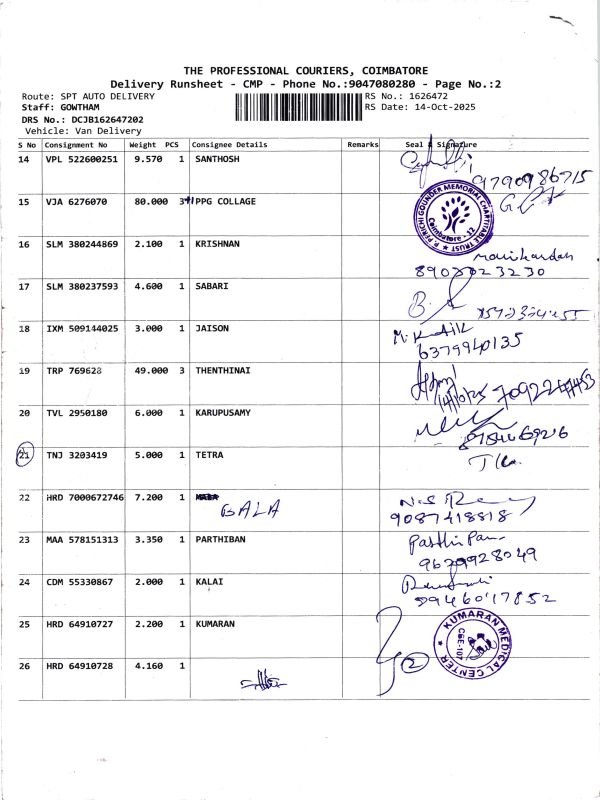 THE PROFESSIONAL COURIERS, COIMBATORE
Delivery Runsheet - CMP - Phone No.:9047080280 - Page No.:2
Route: SPT AUTO DELIVERY
RS No.: 1626472
Staff: GOWTHAM
RS Date: 14-Oct-2025
DRS No.: DCJB162647202
Vehicle: Van Delivery
S No Consignment No Weight PCS Consignee Details Remarks Seal & Signature
14 VPL 522600251 9.570 1 SANTHOSH
9790986715
15 VJA 6276070 80.000 3 PPG COLLAGE
P. PERICHI GOUNDER MEMORIAL CHARITABLE TRUST
Coimbatore - 12
16 SLM 380244869 2.100 1 KRISHNAN
manikandan
8903023230
17 SLM 380237593 4.600 1 SABARI
18 IXM 509144025 3.000 1 JAISON
M. Kartik
6379940135
19 TRP 769628 49.000 3 THENTHINAI
14/10/25
20 TVL 2950180 6.000 1 KARUPUSAMY
21 TNJ 3203419 5.000 1 TETRA
22 HRD 7000672746 7.200 1 BALA
9087418818
23 MAA 578151313 3.350 1 PARTHIBAN
Parthipan
9629928049
24 CDM 55330867 2.000 1 KALAI
9946017852
25 HRD 64910727 2.200 1 KUMARAN
KUMARAN MEDICAL CENTER
CBE-107
26 HRD 64910728 4.160 1
2